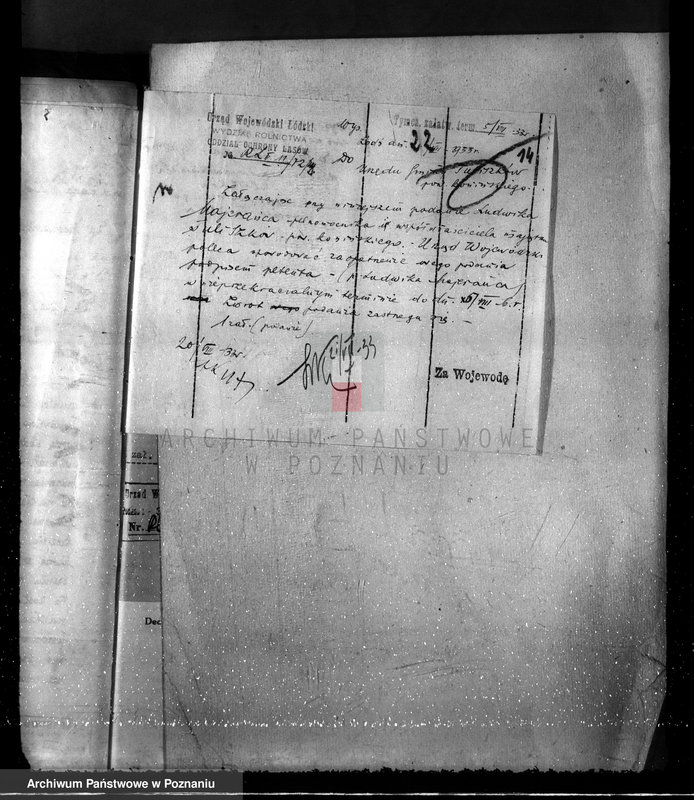 Urząd Wojewódzki Łódzki
WYDZIAŁ ROLNICTWA
ODDZIAŁ OCHRONY LASÓW
№
Tymcz. załatw. term. 5/VII 32r.
Łódź dn. 22 VII 1933r.
14
Do
Urzędu Gminy Tuliszków
pow. Konińskiego.
Załączając przy niniejszem podanie Ludwika
Majerańca współwłaściciela majątku
Tuliszków - pow. konińskiego. - Urząd Wojewódzki
poleca spowodować zaopatrzenie owego podania
podpisem petenta - (p. Ludwika Majerańca)
w nieprzekraczalnym terminie do dn. VIII b.r.
Zwrot podania zastrzega się. -
1 zał. (podanie)
20/VII 33r.
21/VII 33
Za Wojewodę
ARCHIWUM PAŃSTWOWE
W POZNANIU
zał.
Urząd W
Nr.
Dec
Archiwum Państwowe w Poznaniu